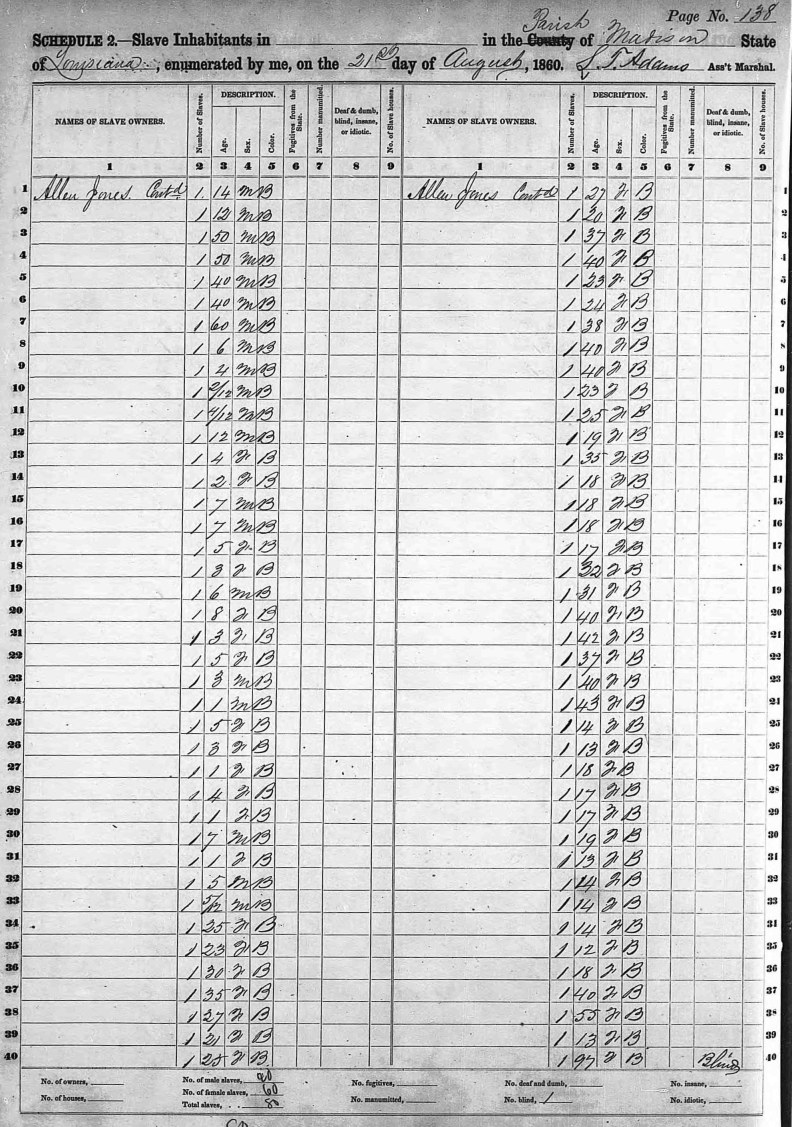 Page No. 138
SCHEDULE 2.—Slave Inhabitants in in the County Parish of Madison State
of Louisiana, enumerated by me, on the 21st day of August, 1860. S. T. Adams Ass't Marshal.
NAMES OF SLAVE OWNERS. Number of Slaves. DESCRIPTION. Age. Sex. Color. Fugitives from the State. Number manumitted. Deaf & dumb, blind, insane, or idiotic. No. of Slave houses. NAMES OF SLAVE OWNERS. Number of Slaves. DESCRIPTION. Age. Sex. Color. Fugitives from the State. Number manumitted. Deaf & dumb, blind, insane, or idiotic. No. of Slave houses.
1 2 3 4 5 6 7 8 9 1 2 3 4 5 6 7 8 9
1 Allen Jones Contd 1 14 M B Allen Jones Contd 1 27 F B 1
2 1 12 M B 1 20 F B 2
3 1 50 M B 1 37 F B 3
4 1 50 M B 1 40 F B 4
5 1 40 M B 1 23 F B 5
6 1 40 M B 1 24 F B 6
7 1 60 M B 1 38 F B 7
8 1 6 M B 1 40 F B 8
9 1 4 M B 1 40 F B 9
10 1 2/12 M B 1 23 F B 10
11 1 4/12 M B 1 25 F B 11
12 1 12 M B 1 19 F B 12
13 1 4 F B 1 35 F B 13
14 1 2 F B 1 18 F B 14
15 1 7 M B 1 18 F B 15
16 1 7 M B 1 18 F B 16
17 1 5 F B 1 17 F B 17
18 1 3 F B 1 32 F B 18
19 1 6 M B 1 31 F B 19
20 1 8 F B 1 40 F B 20
21 1 3 F B 1 42 F B 21
22 1 5 F B 1 37 F B 22
23 1 3 M B 1 40 F B 23
24 1 1 M B 1 43 F B 24
25 1 5 F B 1 14 F B 25
26 1 3 F B 1 13 F B 26
27 1 1 F B 1 18 F B 27
28 1 4 F B 1 17 F B 28
29 1 1 F B 1 17 F B 29
30 1 7 M B 1 19 F B 30
31 1 1 F B 1 13 F B 31
32 1 5 M B 1 14 F B 32
33 1 5/12 M B 1 14 F B 33
34 1 25 F B 1 14 F B 34
35 1 23 F B 1 12 F B 35
36 1 30 F B 1 18 F B 36
37 1 35 F B 1 40 F B 37
38 1 27 F B 1 55 F B 38
39 1 21 F B 1 13 F B 39
40 1 25 F B 1 97 F B Blind 40
No. of owners, No. of male slaves, 20 No. fugitives, No. deaf and dumb, No. insane,
No. of houses, No. of female slaves, 60 No. manumitted, No. blind, 1 No. idiotic,
Total slaves, 80